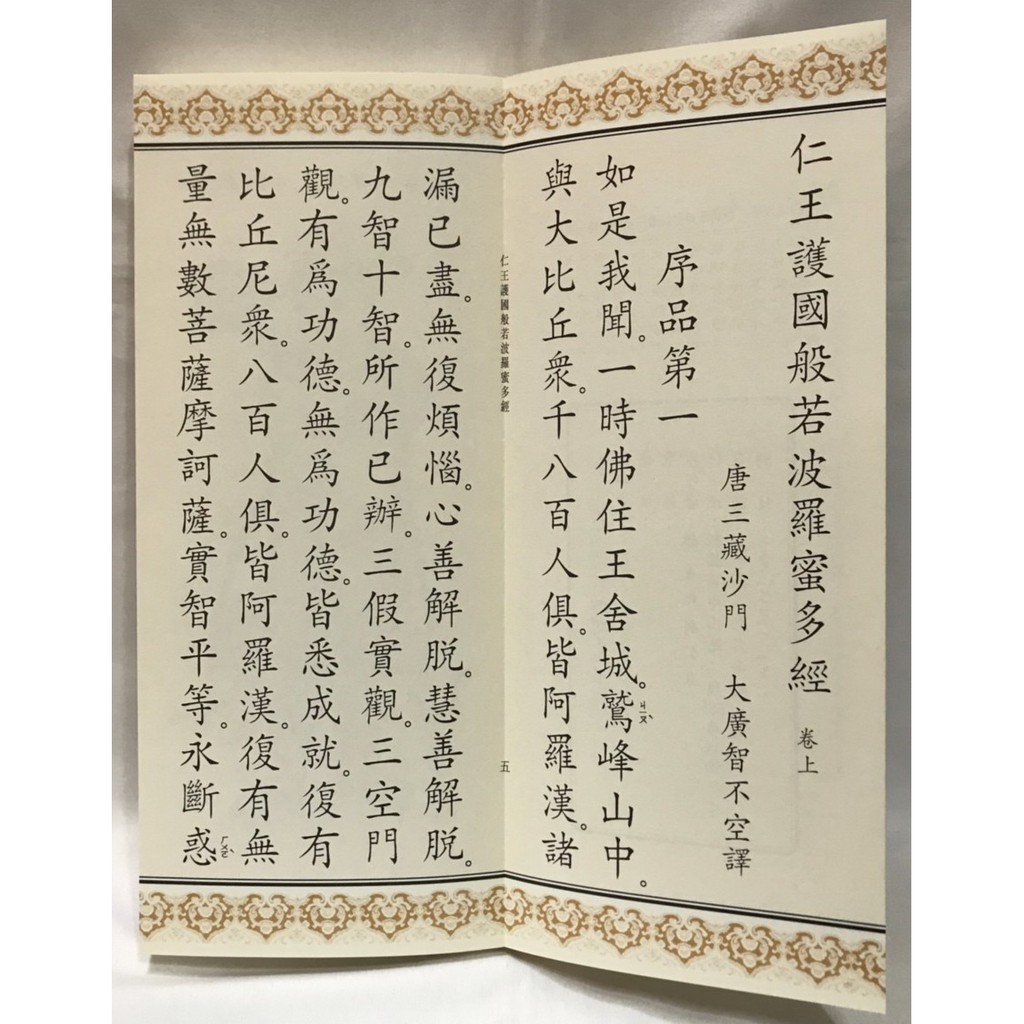 仁王護國般若波羅蜜多經 卷上
唐三藏沙門 大廣智不空譯
序品第一
如是我聞。一時佛住王舍城。鷲ㄐㄧㄡˋ峰山中。
與大比丘衆。千八百人俱。皆阿羅漢。諸
仁王護國般若波羅蜜多經 五
漏已盡。無復煩惱。心善解脫。慧善解脫。
九智十智。所作已辦。三假實觀。三空門
觀。有爲功德。無爲功德。皆悉成就。復有
比丘尼衆。八百人俱。皆阿羅漢。復有無
量無數菩薩摩訶薩。實智平等。永斷惑ㄏㄨㄛˋ